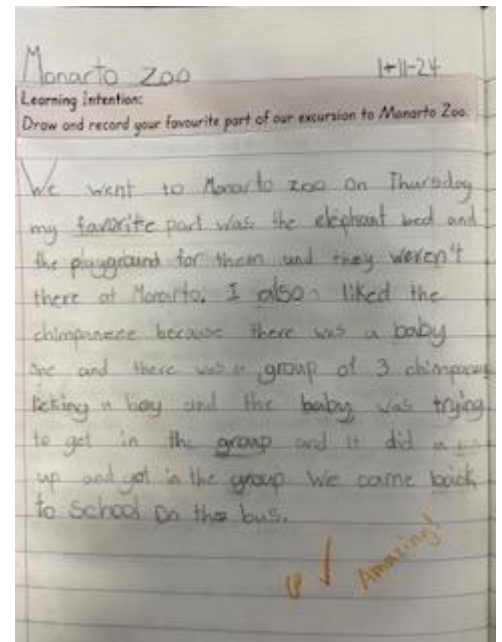 Monarto Zoo 1-11-24
Learning Intention:
Draw and record your favourite part of our excursion to Monarto Zoo.
We went to Monarto zoo on Thursday
my favorite part was the elephant bed and
the playground for them and they weren't
there at Monarto. I also liked the
chimpaneee because there was a baby
one and there was a group of 3
licking a boy and the baby was trying
to get in the group and it did a
up and got in the group We came back
to school on the bus.
Amazing!